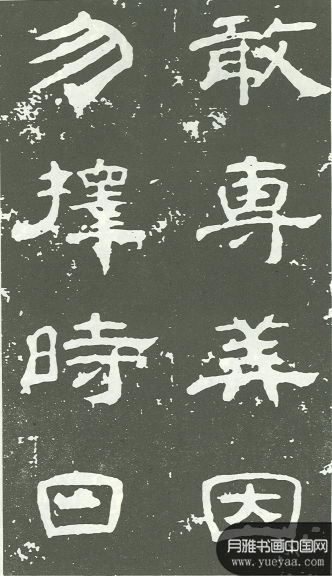 敢専美因
勿擇時日
月雅书画中国网
www.yueyaa.com